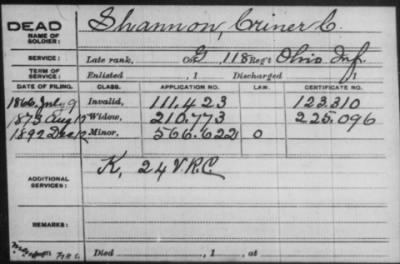 DEAD NAME OF SOLDIER: Shannon, Criner C.
SERVICE: Late rank, Co. G, 118 Reg't Ohio Inf.
TERM OF SERVICE: Enlisted , 1 Discharged , 1
DATE OF FILING. CLASS. APPLICATION NO. LAW. CERTIFICATE NO.
1866 July 9 Invalid, 111.423 123.310
1873 Aug 19 Widow, 210.773 225.096
1892 Dec 12 Minor. 566.622 0
ADDITIONAL SERVICES: K, 24 V.R.C.
REMARKS:
Died , 1 , at